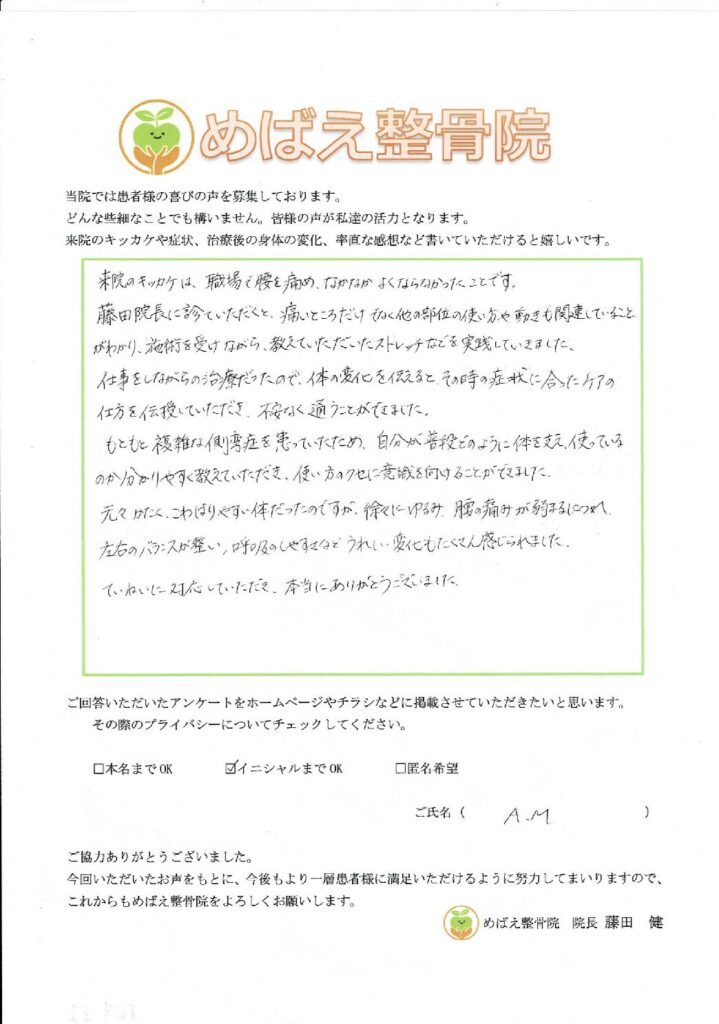 めばえ整骨院
当院では患者様の喜びの声を募集しております。
どんな些細なことでも構いません。皆様の声が私達の活力となります。
来院のキッカケや症状、治療後の身体の変化、率直な感想など書いていただけると嬉しいです。
来院のキッカケは、職場で腰を痛め、なかなかよくならなかったことです。
藤田院長に診ていただくと、痛いところだけでなく他の部位の使い方や動きも関連していること
がわかり、施術を受けながら、教えていただいたストレッチなどを実践していきました。
仕事をしながらの治療だったので、体の変化を伝えると、その時の症状に合ったケアの
仕方を伝授していただき、不安なく通うことができました。
もともと複雑な側弯症を患っていたため、自分が普段どのように体を支え、使っている
のか分かりやすく教えていただき、使い方のクセに意識を向けることができました。
元々かたく、こわばりやすい体だったのですが、徐々にゆるみ、腰の痛みが弱まるにつれ、
左右のバランスが整い、呼吸のしやすさなどうれしい変化もたくさん感じられました。
ていねいに対応していただき、本当にありがとうございました。
ご回答いただいたアンケートをホームページやチラシなどに掲載させていただきたいと思います。
その際のプライバシーについてチェックしてください。
□本名までOK ☑イニシャルまでOK □匿名希望
ご氏名（ A.M ）
ご協力ありがとうございました。
今回いただいたお声をもとに、今後もより一層患者様に満足いただけるように努力してまいりますので、
これからもめばえ整骨院をよろしくお願いします。
めばえ整骨院 院長 藤田 健